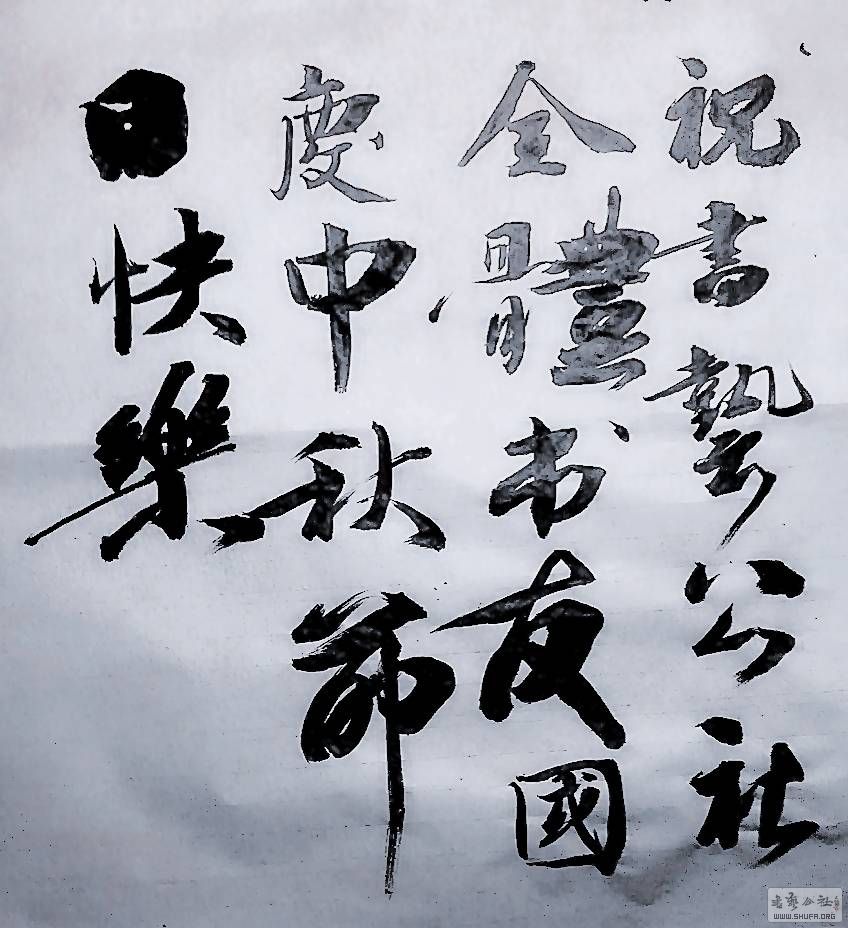 祝書藝公社
全體书友國
慶中秋節
日快樂
书艺公社
WWW.SHUFA.ORG